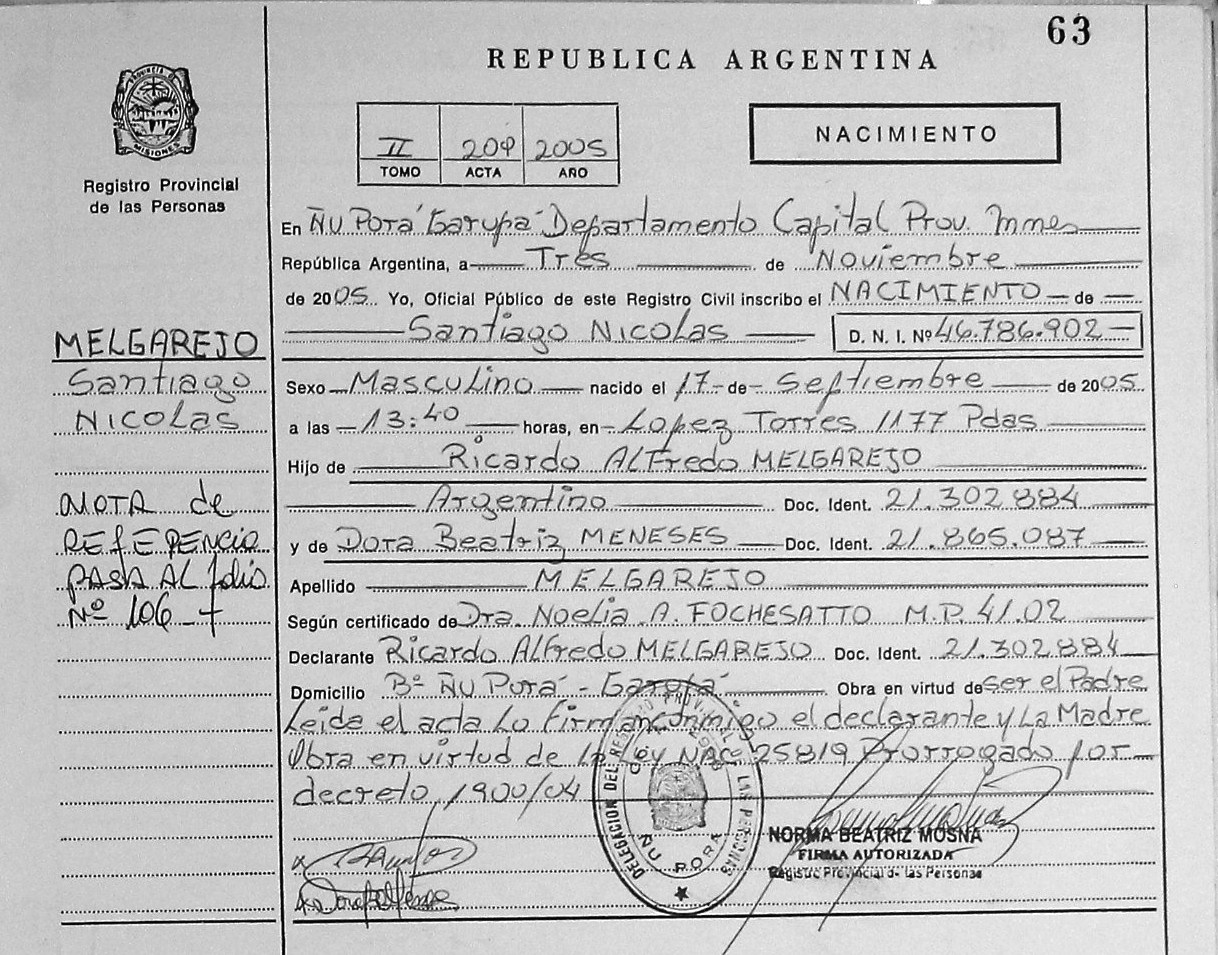 63
REPUBLICA ARGENTINA
PROVINCIA DE
MISIONES
Registro Provincial
de las Personas
II 209 2005
TOMO ACTA AÑO
NACIMIENTO
En ÑU PORÁ Garupá Departamento Capital Prov. Mnes
República Argentina, a Tres de Noviembre
de 2005. Yo, Oficial Público de este Registro Civil inscribo el NACIMIENTO de
Santiago NICOLas D. N. I. Nº 46.786.902
MELGAREJO
Santiago
NICOLas
Sexo Masculino nacido el 17 de Septiembre de 2005
a las 13:40 horas, en Lopez Torres 1177 Pdas
Hijo de Ricardo ALFredo MELGAREJO
Argentino Doc. Ident. 21.302.884
y de Dora Beatriz MENESES Doc. Ident. 21.865.087
Apellido MELGAREJO
NOTA de
REfERENCIA
PASA AL folio
Nº 106
Según certificado de Dra. Noelia A. FOCHESATTO M.P. 4102
Declarante Ricardo ALFredo MELGAREJO Doc. Ident. 21.302.884
Domicilio Bº ÑU Porá - Garupá Obra en virtud de ser el Padre
Leida el acta Lo Firman conmigo el declarante y La Madre
Obra en virtud de la Ley NAC 25819 Prorrogado por
decreto 1900/04
DELEGACION DEL REGISTRO PROVINCIAL DE LAS PERSONAS
ÑU PORA
NORMA BEATRIZ MOSNA
FIRMA AUTORIZADA
Registro Provincial de las Personas